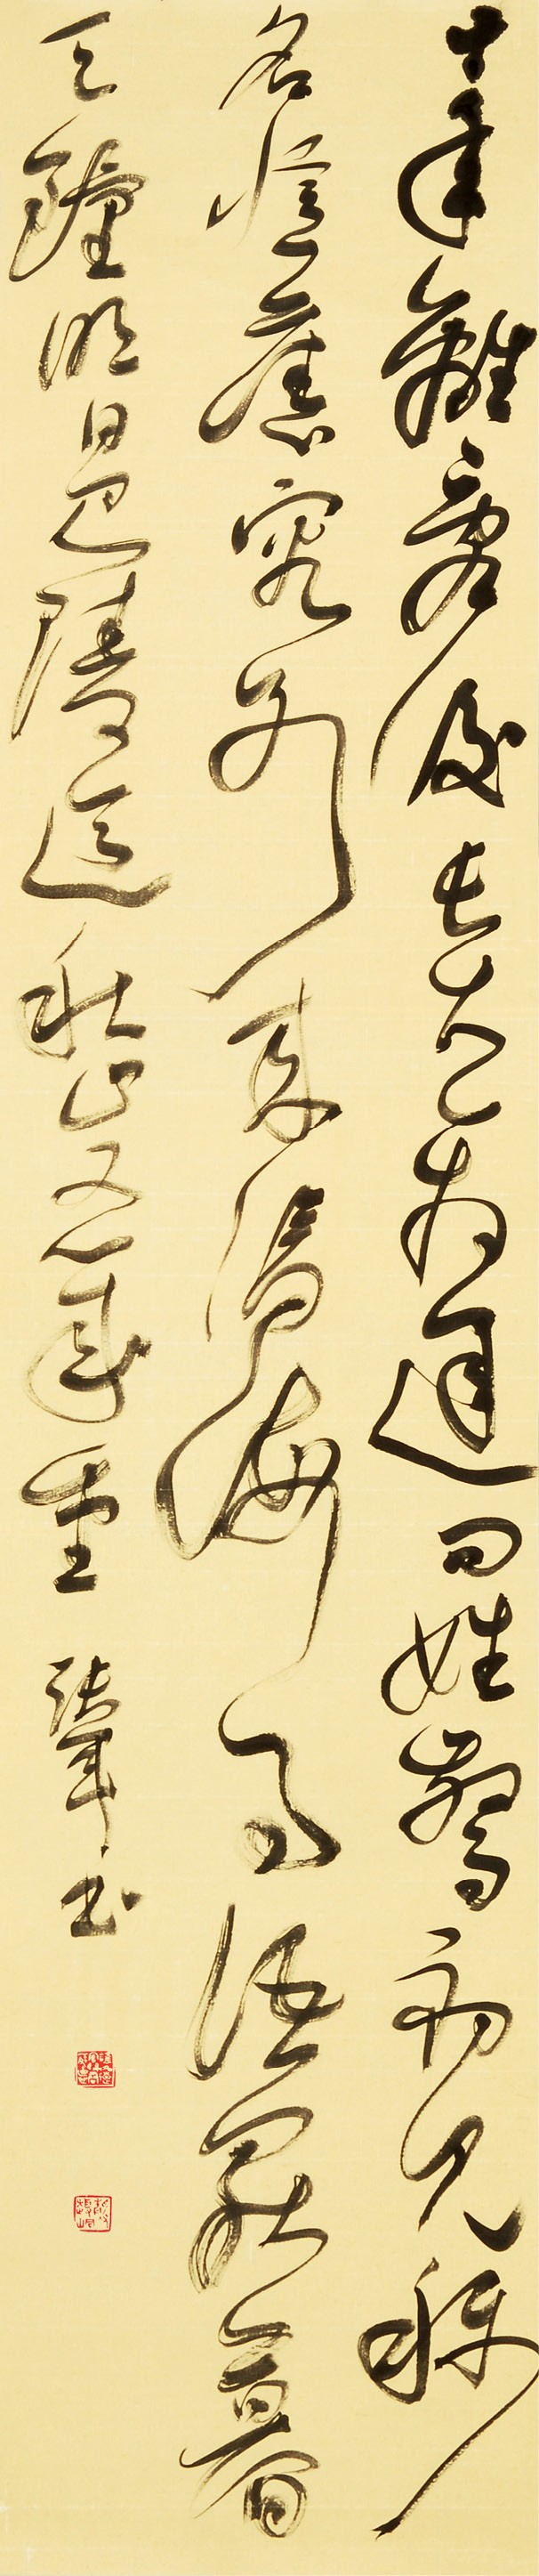 十年離亂後長大一相逢問姓驚初見稱
名憶舊容別來滄海事語罷暮
天鐘明日巴陵道秋山又幾重 書